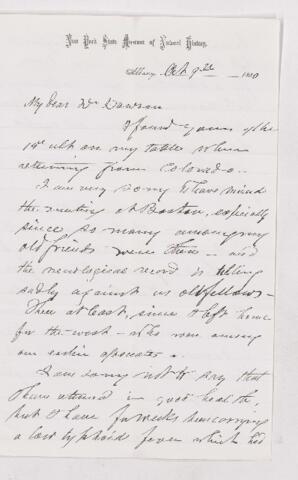 New York State Museum of Natural History,
Albany, Oct 9th 1880
My dear Dr Dawson
I found yours of the
19th ult on my table when
returning from Colorado.
I am very sorry to have missed
the meeting at Boston, especially
since so many among my
old friends were there — and
the necrological record is telling
sadly against us old fellows —
Three at least, since I left home
for the west — who were among
our earlier associates.
I am sorry not to say that
I have returned in good health,
but I have for weeks been carrying
a low typhoid fever which has